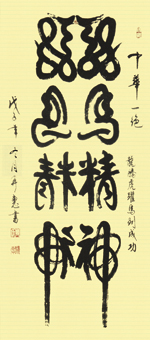 中華一絕
龍騰虎躍馬到成功
龍馬精神
戊子年冬月
書